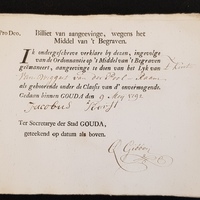 Pro Deo. Billiet van aangeevinge, wegens het
Middel van 't Begraven.
Ik ondergeschreve verklare by deezen, ingevolge
van de Ordonnantie op 't Middel van 't Begraven
geëmaneert, aangevinge te doen van het Lyk van
als gehoorende onder de Classis van d' onvermogende.
Gedaan binnen GOUDA den 9 May 1792
Jacobus
Ter Secretarye der Stad GOUDA,
geteekend op datum als boven.